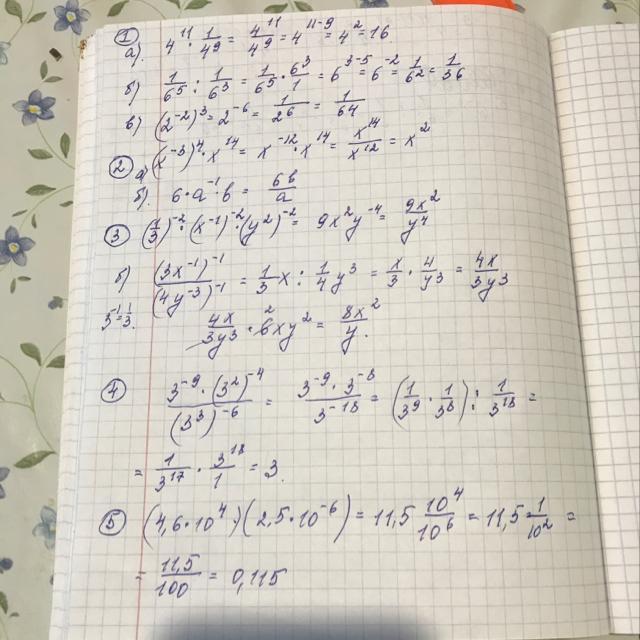 ① а). 4¹¹ · 1/4⁹ = 4¹¹/4⁹ = 4¹¹⁻⁹ = 4² = 16
б) 1/6⁵ : 1/6³ = 1/6⁵ · 6³/1 = 6³⁻⁵ = 6⁻² = 1/6² = 1/36
в) (2⁻²)³ = 2⁻⁶ = 1/2⁶ = 1/64
② а) (x⁻³)⁴ · x¹⁴ = x⁻¹² · x¹⁴ = x¹⁴/x¹² = x²
б). 6 · a⁻¹ · b = 6b/a
③ (1/3)⁻² · (x⁻¹)⁻² · (y²)⁻² = 9x²y⁻⁴ = 9x²/y⁴
б) (3x⁻¹)⁻¹/(4y⁻³)⁻¹ = 1/3 x : 1/4 y³ = x/3 · 4/y³ = 4x/3y³
3⁻¹ = 1/3. 4x/3y³ · 6² xy² = 8x²/y.
④ 3⁻⁹ · (3²)⁻⁴/(3³)⁻⁶ = 3⁻⁹ · 3⁻⁸/3⁻¹⁸ = (1/3⁹ · 1/3⁸) : 1/3¹⁸ =
= 1/3¹⁷ · 3¹⁸/1 = 3.
⑤ (4,6 · 10⁴ ·)(2,5 · 10⁻⁶) = 11,5 10⁴/10⁶ = 11,5 · 1/10² =
= 11,5/100 = 0,115